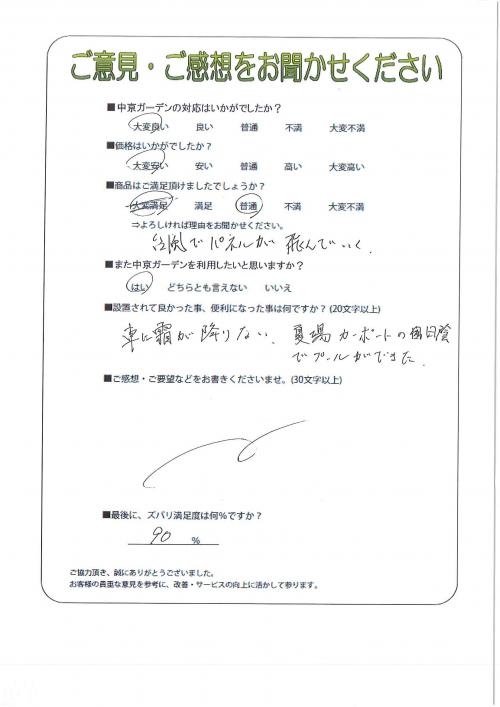 ご意見・ご感想をお聞かせください
■中京ガーデンの対応はいかがでしたか？
大変良い 良い 普通 不満 大変不満
■価格はいかがでしたか？
大変安い 安い 普通 高い 大変高い
■商品はご満足頂けましたでしょうか？
大変満足 満足 普通 不満 大変不満
⇒よろしければ理由をお聞かせください。
台風でパネルが飛んでいく.
■また中京ガーデンを利用したいと思いますか？
はい どちらとも言えない いいえ
■設置されて良かった事、便利になった事は何ですか？(20文字以上)
車に霜が降りない、夏場カーポートの日陰
でプールができた.
■ご感想・ご要望などをお書きくださいませ。(30文字以上)
■最後に、ズバリ満足度は何％ですか？
90 %
ご協力頂き、誠にありがとうございました。
お客様の貴重な意見を参考に、改善・サービスの向上に活かして参ります。